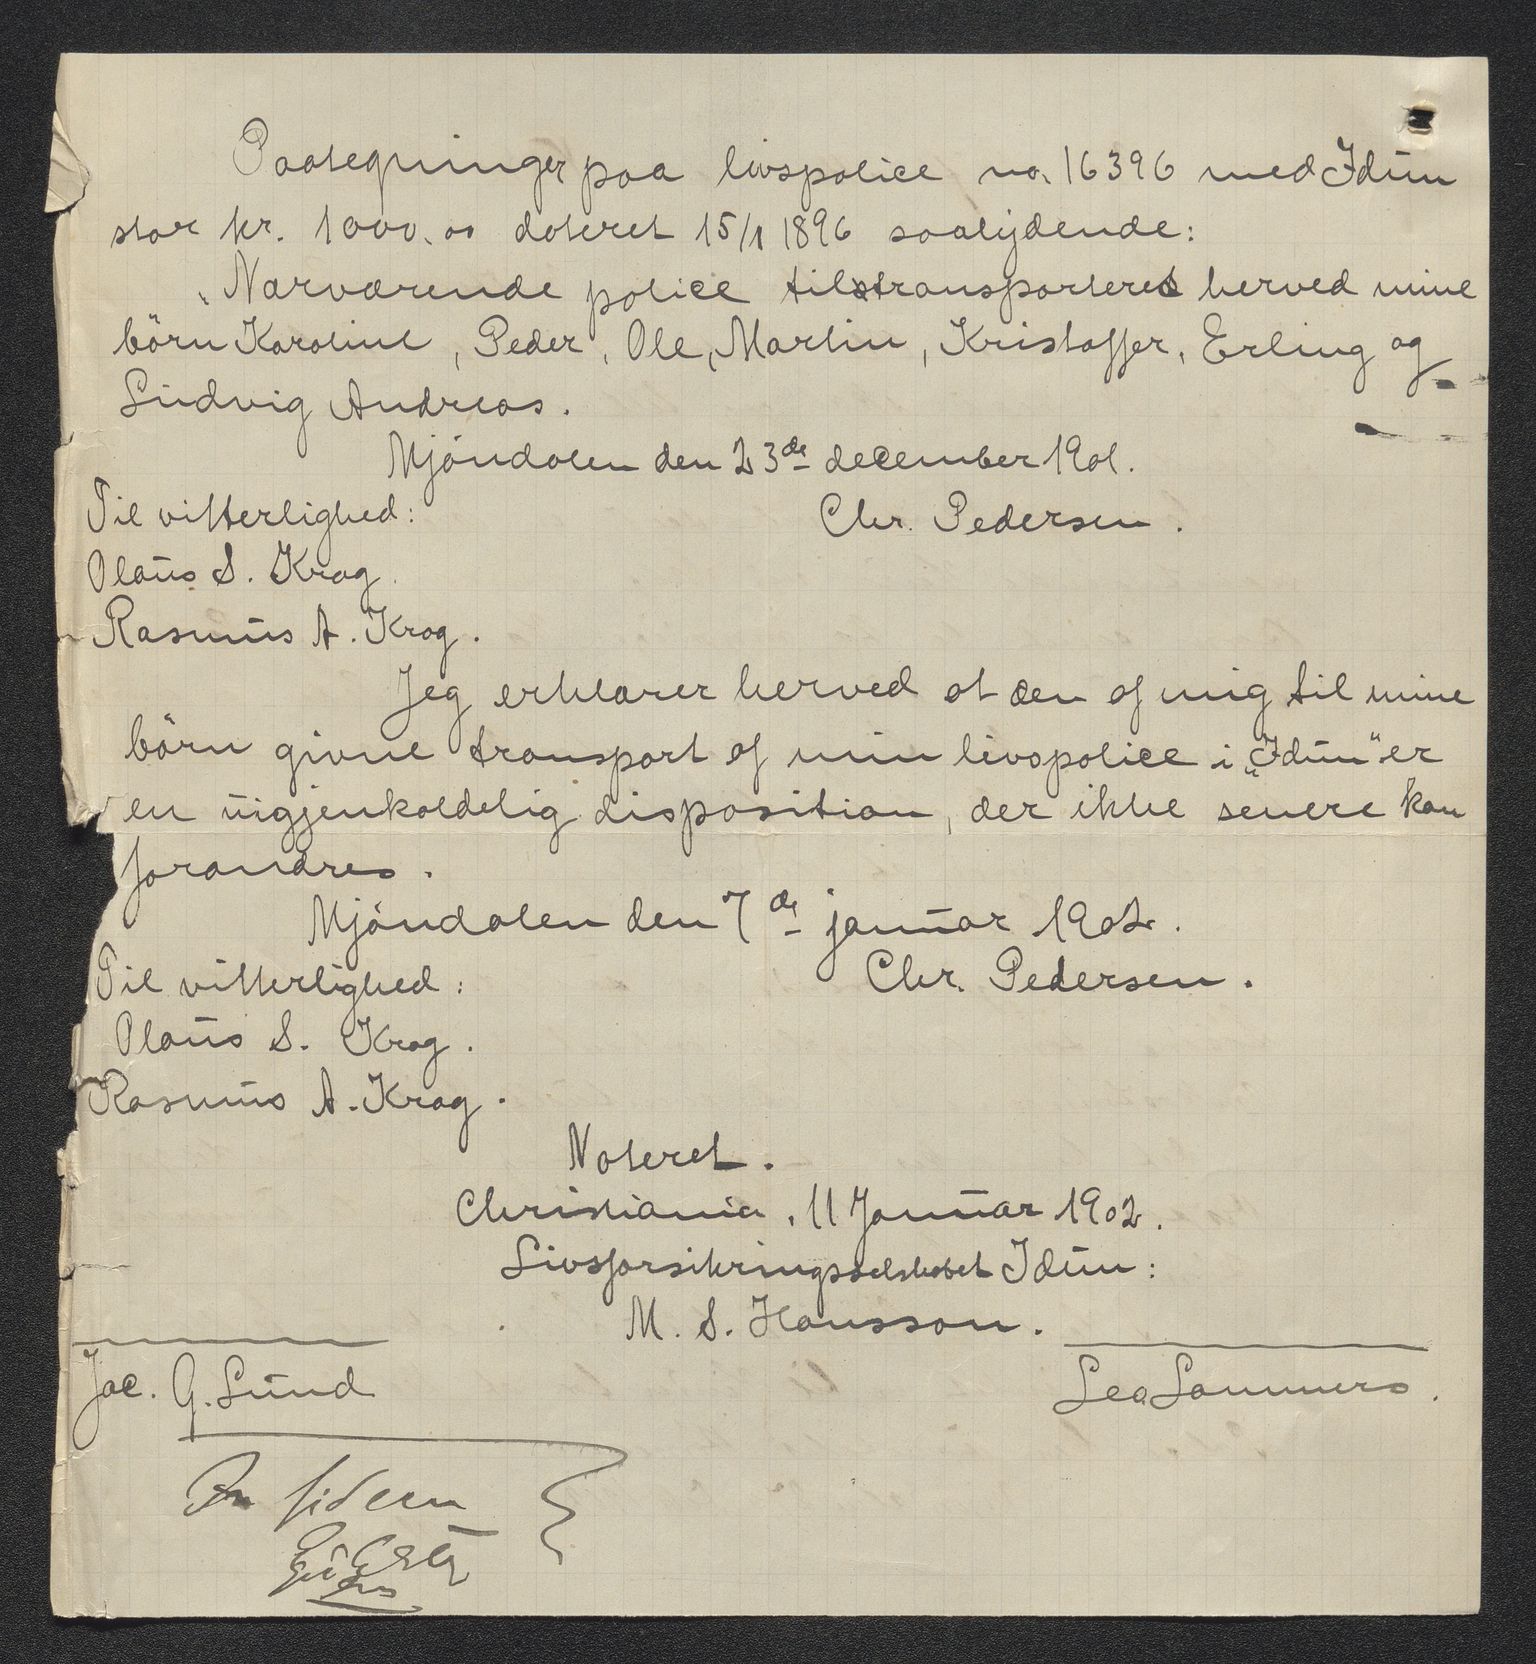 Paategninger paa livspolice no. 16396 med Idun
stor kr. 1000.00 dateret 15/1 1896 saalydende:
"Nærværende police tiltransporteres herved mine
börn Karoline, Peder, Ole, Martin, Kristoffer, Erling og
Ludvig Andreas.
Mjöndalen den 23de december 1901.
Til vitterlighed:
Chr. Pedersen.
Olaus S. Krog.
Rasmus A. Krog.
Jeg erklærer herved at den af mig til mine
börn givne transport af min livspolice i „Idun" er
en uigjenkaldelig disposition, der ikke senere kan
forandres.
Mjöndalen den 7de januar 1902.
Til vitterlighed:
Chr. Pedersen.
Olaus S. Krog.
Rasmus A. Krog.
Noteret.
Christiania, 11 Januar 1902.
Livsforsikringsselskabet Idun:
M. S. Hansson.
Jac. G. Lund
Leo Lammers.